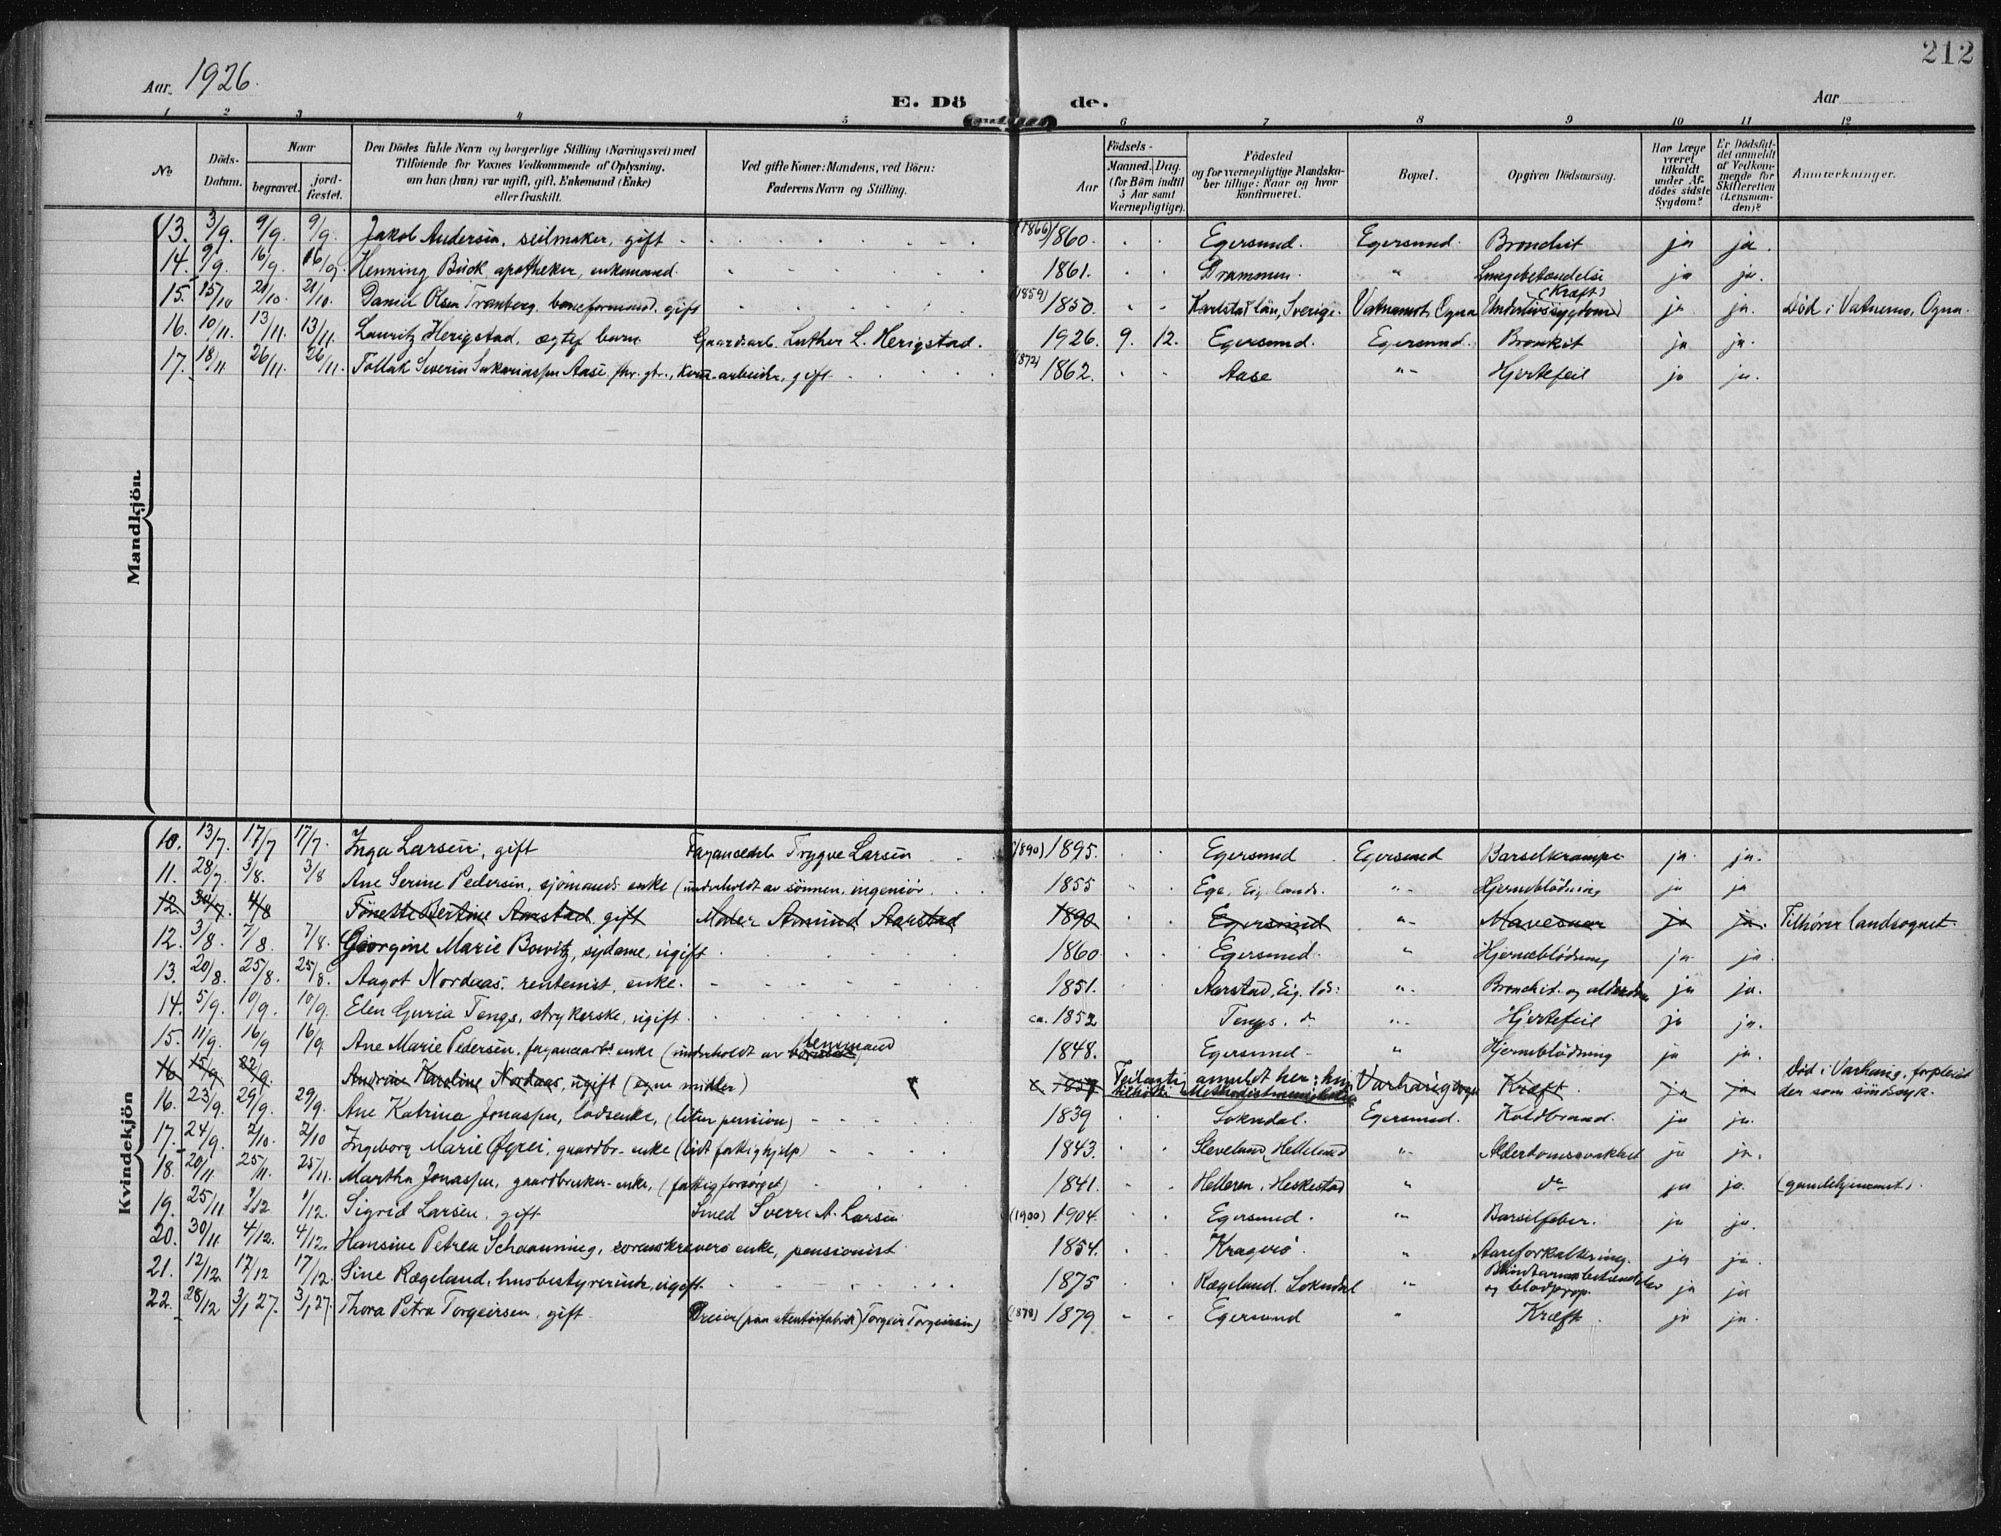 212
Aar 1926.
E. Dö de.
Aar
1 2 3 4 5 6 7 8 9 10 11 12
No
Döds-Datum.
Naar
begravet.
jord-fæstet.
Den Dödes fulde Navn og borgerlige Stilling (Næringsvei) med
Tilföiende for Voxnes Vedkommende af Oplysning,
om han (hun) var ugift, gift, Enkemand (Enke)
eller fraskilt.
Ved gifte Koner: Mandens, ved Börn:
Faderens Navn og Stilling.
Födsels-
Aar
Maaned. Dag.
(for Börn indtil
5 Aar samt
Værnepligtige).
Födested
og for værnepligtige Mandska-
ber tillige: Naar og hvor
konfirmeret.
Bopæl.
Opgiven Dödsaarsag.
Har Læge
været
tilkaldt
under Af-
dödes sidste
Sygdom?
Er Dödsfal-
det anmeldt
af Vedkom-
mende for
Skifteretten
(Lensman-
den)?
Anmærkninger.
Mandkjön.
13. 3/9. 9/9. 9/9. Jakob Andersen, seilmaker, gift (1866) 1860. Egersund. Egersund. Bronchit ja ja.
14. 9/9. 16/9. 16/9. Henning Buck, apotheker, enkemand. 1861. Drammen. " Lungebetændelse ja ja.
15. 15/10 21/10. 21/10. Daniel Olsen Tranberg, baneformand, gift (1859) 1850. Karlstad län, Sverige. Vatnamot, Ogna Underlivssygdom (Kræft) ja ja. Död i Vatnemo, Ogna.
16. 10/11. 13/11. 13/11. Lauritz Herigstad, ægtef barn. Gaardsarb. Luther L. Herigstad. 1926. 9. 12. Egersund. Egersund. Bronkit ja ja.
17. 18/11 26/11. 26/11. Tollak Severin Sakariassen Aase, fhv. gbr., arbeider, gift (1872) 1862. Aase " Hjertefeil ja ja.
Kvindekjön
10. 13/7. 17/7 17/7. Inga Larsen, gift Fayancearb Trygve Larsen (1890) 1895. Egersund. Egersund Barselkrampe ja ja.
11. 28/7. 3/8. 3/8 Ane Serine Pedersen, sjömands enke (underholdt av sönnen, ingeniör 1855 Ege, Eig. lands. " Hjerneblödning ja ja
12. 30/7. 4/8 Tönette Bertine Aarstad, gift Maler Amund Aarstad 1890 Egersund " Mavesaar ja ja. Tilhörer landsognet.
12. 3/8. 7/8. 7/8. Georgine Marie Bowitz, sydame, ugift 1860 Egersund. " Hjerneblödning ja. ja.
13. 20/8. 25/8. 25/8. Aagot Nordaas, rentenist, enke. 1851. Aarstad, Eig. lds: " Bronchit. og alderdom ja ja.
14. 5/9. 10/9. 10/9. Elen Guria Tengs, strykerske, ugift. ca. 1852 Tengs. do " Hjertefeil ja ja.
15. 11/9. 16/9 16/9. Ane Marie Pedersen, fayancearbs enke (underholdt av 1848. Egersund. " Hjerneblödning ja ja.
16 15/9 22/9. Andrine Karoline Nordaas, ugift (egne midler) 1857 Varhaug Kræft ja ja Död i Varhaug, forpleiet
der som sindssyk.
16. 23/9. 29/9. 29/9. Ane Katrina Jonassen, losenke, (liten pension) 1839 Sokndal. Egersund. Koldbrand. ja ja.
17. 24/9. 2/10. 2/10 Ingeborg Marie gaardbr. enke (lidt fattighjelp) 1843. Sleveland, Helleland " Alderdomssvakhet ja ja.
18. 20/11 25/11. 25/11. Martha Jonassen, gaardbruker enke, (fattigforsörget) 1841. Helleren, Heskestad " do ja ja.
19. 25/11 1/12 1/12. Sigrid Larsen, gift Smed Sverre A. Larsen (1900) 1904. Egersund. " Barselfeber. ja ja.
20. 30/11 4/12. 4/12. Hansine Petrea Schaanning, sorenskrivers enke, pensionist. 1854. Kragerö. " Aareforkalkning. ja ja.
21. 12/12. 17/12 17/12. Sine Rægeland, husbestyrerinde, ugift. 1875 Rægeland. Sokndal " Blindtarmsbetændelse
og blodprop. ja ja
22. 28/12 3/1 27. 3/1 27. Thora Petra Torgeirsen, gift Dreier Torgeir Torgeirsen) (1878) 1879 Egersund " Kræft. ja ja.